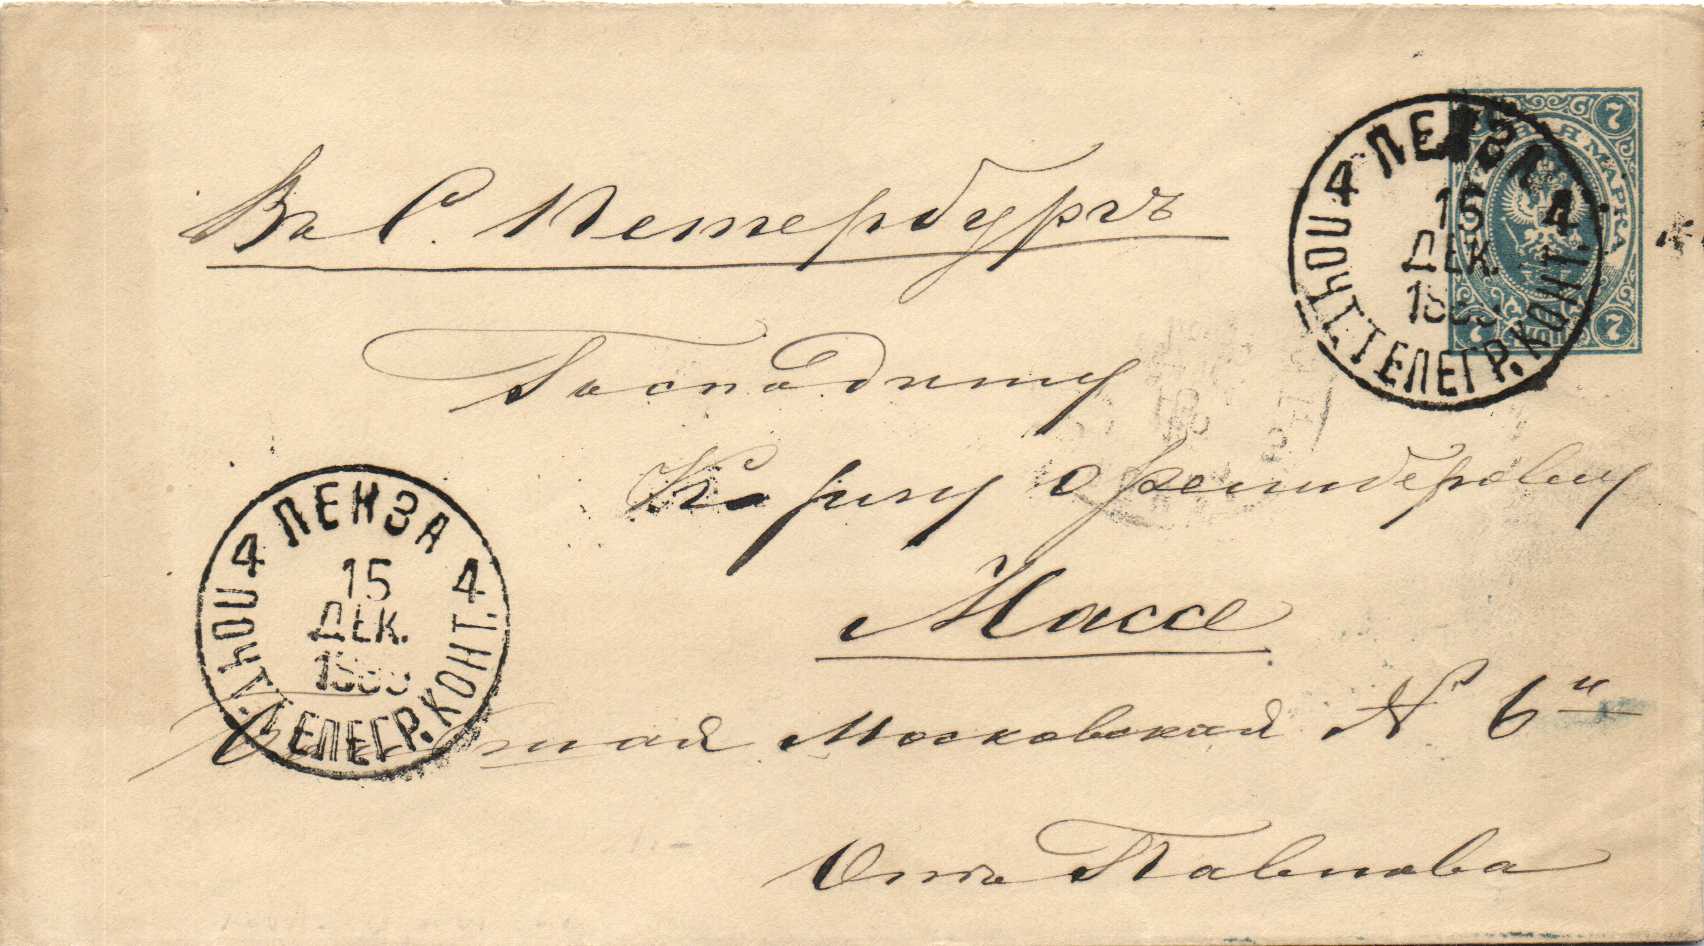 Въ С. Петербургъ
Господину
Карлу Фенидберовичу
Массе
Московская № 6й
Отъ Павлова
ПЕНЗА
4 4
15
ДЕК.
ПОЧТ.ТЕЛЕГР.КОНТ.
ПЕНЗА
4 4
15
ДЕК.
ПОЧТ.ТЕЛЕГР.КОНТ.
МАРКА
7
7
7